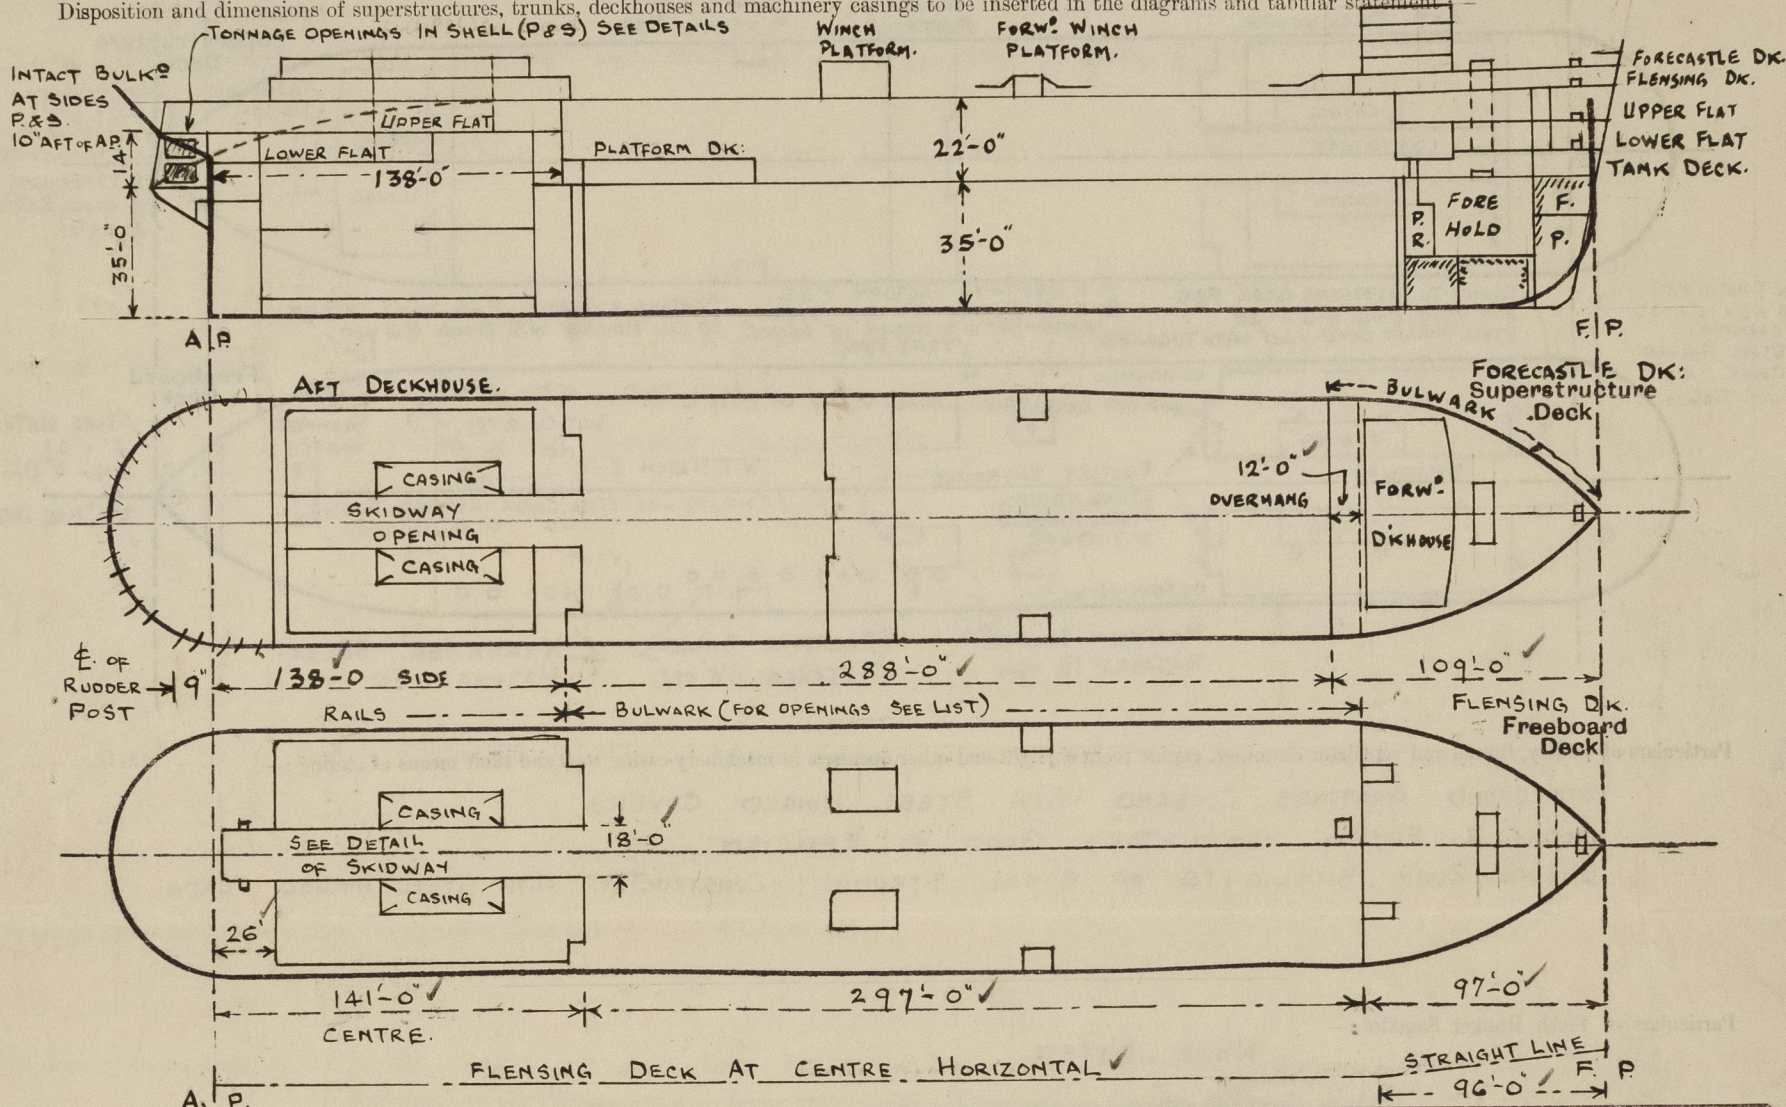 Disposition and dimensions of superstructures, trunks, deckhouses and machinery casings to be inserted in the diagrams and tabular statement :—
TONNAGE OPENINGS IN SHELL (P&S) SEE DETAILS
WINCH
PLATFORM.
FORWD. WINCH
PLATFORM.
INTACT BULKD
AT SIDES
P.&S.
10" AFT OF A.P.
FORECASTLE DK.
FLENSING DK.
UPPER FLAT
LOWER FLAT
TANK DECK.
UPPER FLAT
LOWER FLAT
PLATFORM DK:
138'-0"
22'-0"
14'
35'-0"
35'-0"
P.
R.
FORE
HOLD
F.
P.
A P.
F. P.
AFT DECKHOUSE.
FORECASTLE DK:
Superstructure
Deck
BULWARK
CASING
SKIDWAY
OPENING
CASING
12'-0"
OVERHANG
FORWD.
D'KHOUSE
℄ OF
RUDDER
POST
9"
138-0 SIDE
288'-0"
109'-0"
RAILS
BULWARK (FOR OPENINGS SEE LIST)
FLENSING DK.
Freeboard
Deck
CASING
SEE DETAIL
OF SKIDWAY
CASING
18'-0"
26'
141'-0"
CENTRE.
297'-0"
97'-0"
FLENSING DECK AT CENTRE HORIZONTAL
STRAIGHT LINE
F. P.
96'-0"
A. P.